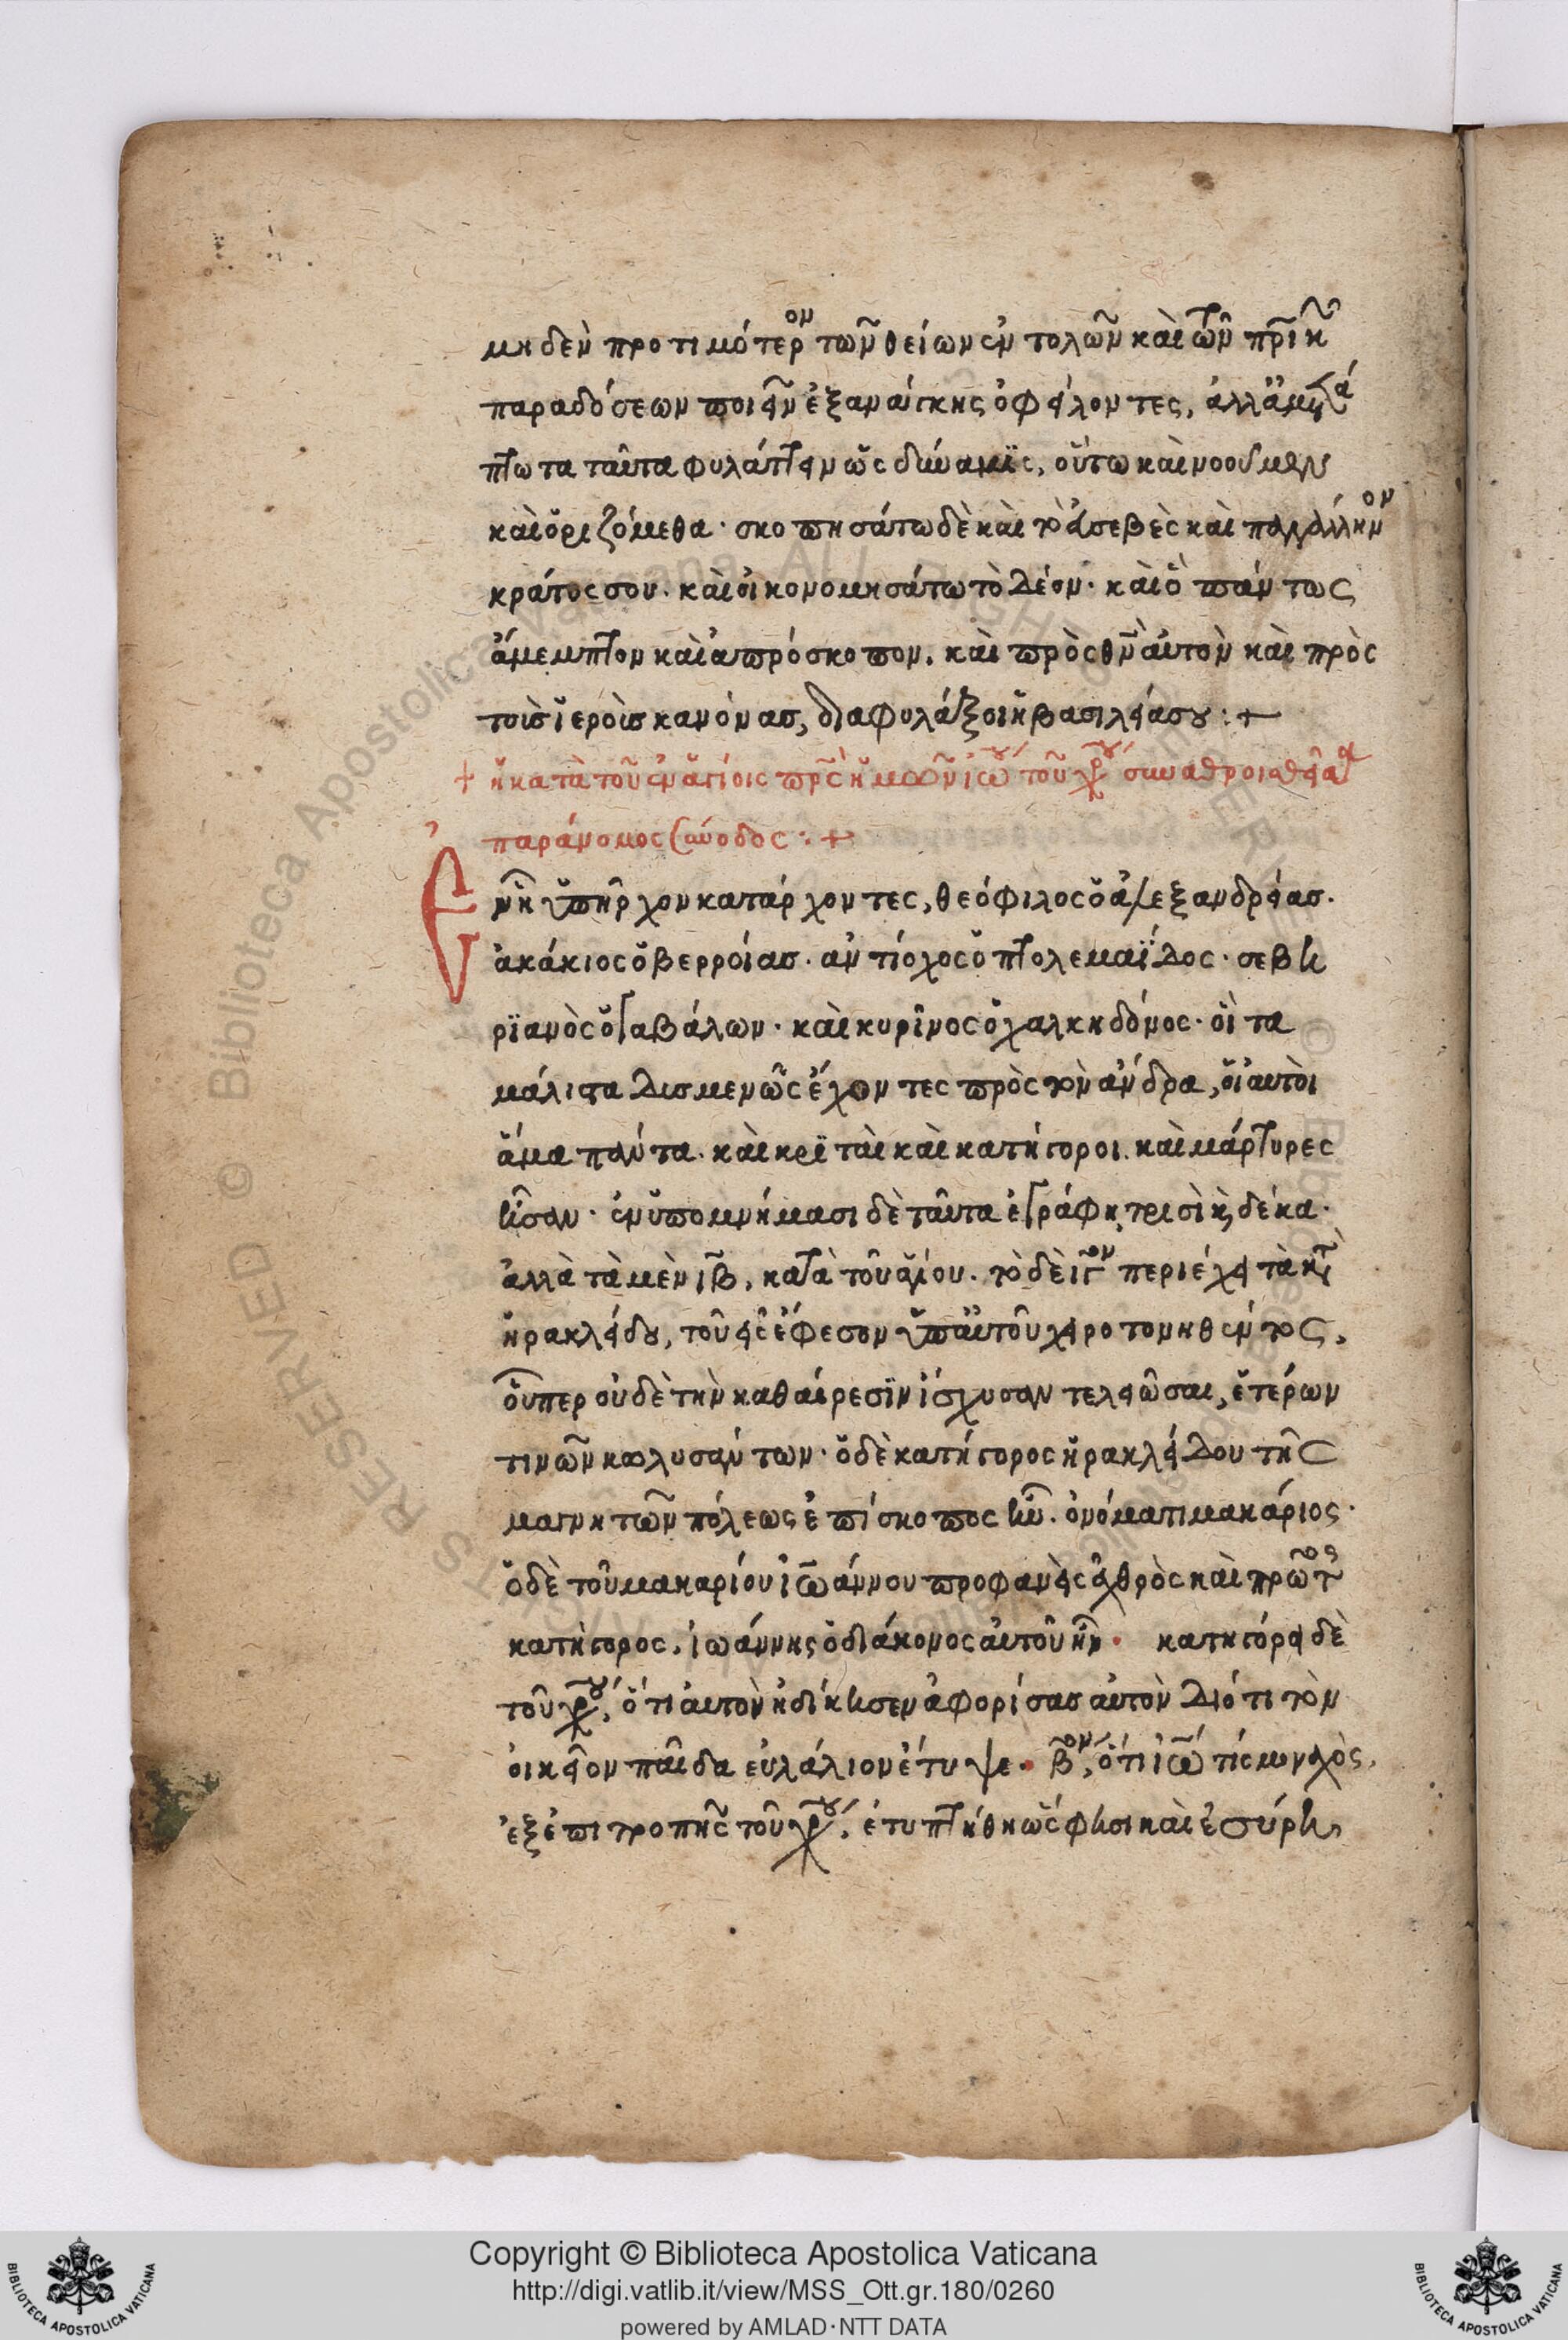 μηδὲν προτιμότερον τῶν θείων ἐντολῶν καὶ τῶν πρικῶν
παραδόσεων ποιεῖν ἐξανάγκης ὀφείλοντες, ἀλλ' ἀμετά
πτωτα ταῦτα φυλάττειν ὡς δύναμις, οὕτω καὶ νοοῦμεν
καὶ ὁριζόμεθα· σκοπησάτω δὲ καὶ τὸ εὐσεβὲς καὶ παγγάληνον
κράτος σου. καὶ οἰκονομησάτω τὸ δέον· καὶ ὃ πάντως
ἄμεμπτον καὶ ἀπρόσκοπον. καὶ πρὸς θν αὐτὸν καὶ πρὸς
τοὺς ἱεροὺς κανόνας, διαφυλάξοι ἡ βασιλεία σου :+
+ ἡ κατὰ τοῦ ἐν ἁγίοις πρς ἡμῶν ἰω τοῦ χρου συναθροισθεῖσα
παράνομος σύνοδος :+
Ἐν ᾗ ὑπῆρχον κατάρχοντες, θεόφιλος ὁ ἀλεξανδρείας.
ἀκάκιος ὁ βερροίας. ἀντίοχος ὁ πτολεμαΐδος· σεβη
ριανὸς ὁ γαβάλων· καὶ κυρῖνος ὁ χαλκηδόνος· οἳ τὰ
μάλιστα δυσμενῶς ἔχοντες πρὸς τὸν ἄνδρα, οἱ αὐτοὶ
ἅμα πάντα. καὶ κριταὶ καὶ κατήγοροι. καὶ μάρτυρες
ἦσαν· ἐν ὑπομνήμασι δὲ ταῦτα ἐγράφη τρισὶ κ, δέκα·
ἀλλὰ τὰ μὲν ιβ, κατὰ τοῦ ἁγίου. τὸ δὲ ιγον περιέχει τὰ κατὰ
ἡρακλείδου, τοῦ εἰς ἔφεσον ὑπ' αὐτοῦ χειροτονηθέντος,
οὗπερ οὐδὲ τὴν καθαίρεσιν ἴσχυσαν τελειῶσαι, ἑτέρων
τινῶν κωλυσάντων· ὁ δὲ κατήγορος ἡρακλείδου τῆς
μαγνητῶν πόλεως ἐπίσκοπος ἦν. ὀνόματι μακάριος·
ὁ δὲ τοῦ μακαρίου ἰωάννου προφανὴς ἐχθρὸς καὶ πρῶτος
κατήγορος, ἰωάννης ὁ διάκονος αὐτοῦ ἦν· κατηγόρει δὲ
τοῦ χρου, ὅτι αὐτὸν ἠδίκησεν ἀφορίσας αὐτὸν διότι τὸν
οἰκεῖον παῖδα εὐλάλιον ἔτυψε· βον, ὅτι ἰω τίς μοναχὸς,
ἐξ ἐπιτροπῆς τοῦ χρου, ἐτυπτήθη ὥς φησι καὶ ἐσύρη,
Copyright © Biblioteca Apostolica Vaticana
http://digi.vatlib.it/view/MSS_Ott.gr.180/0260
powered by AMLAD·NTT DATA